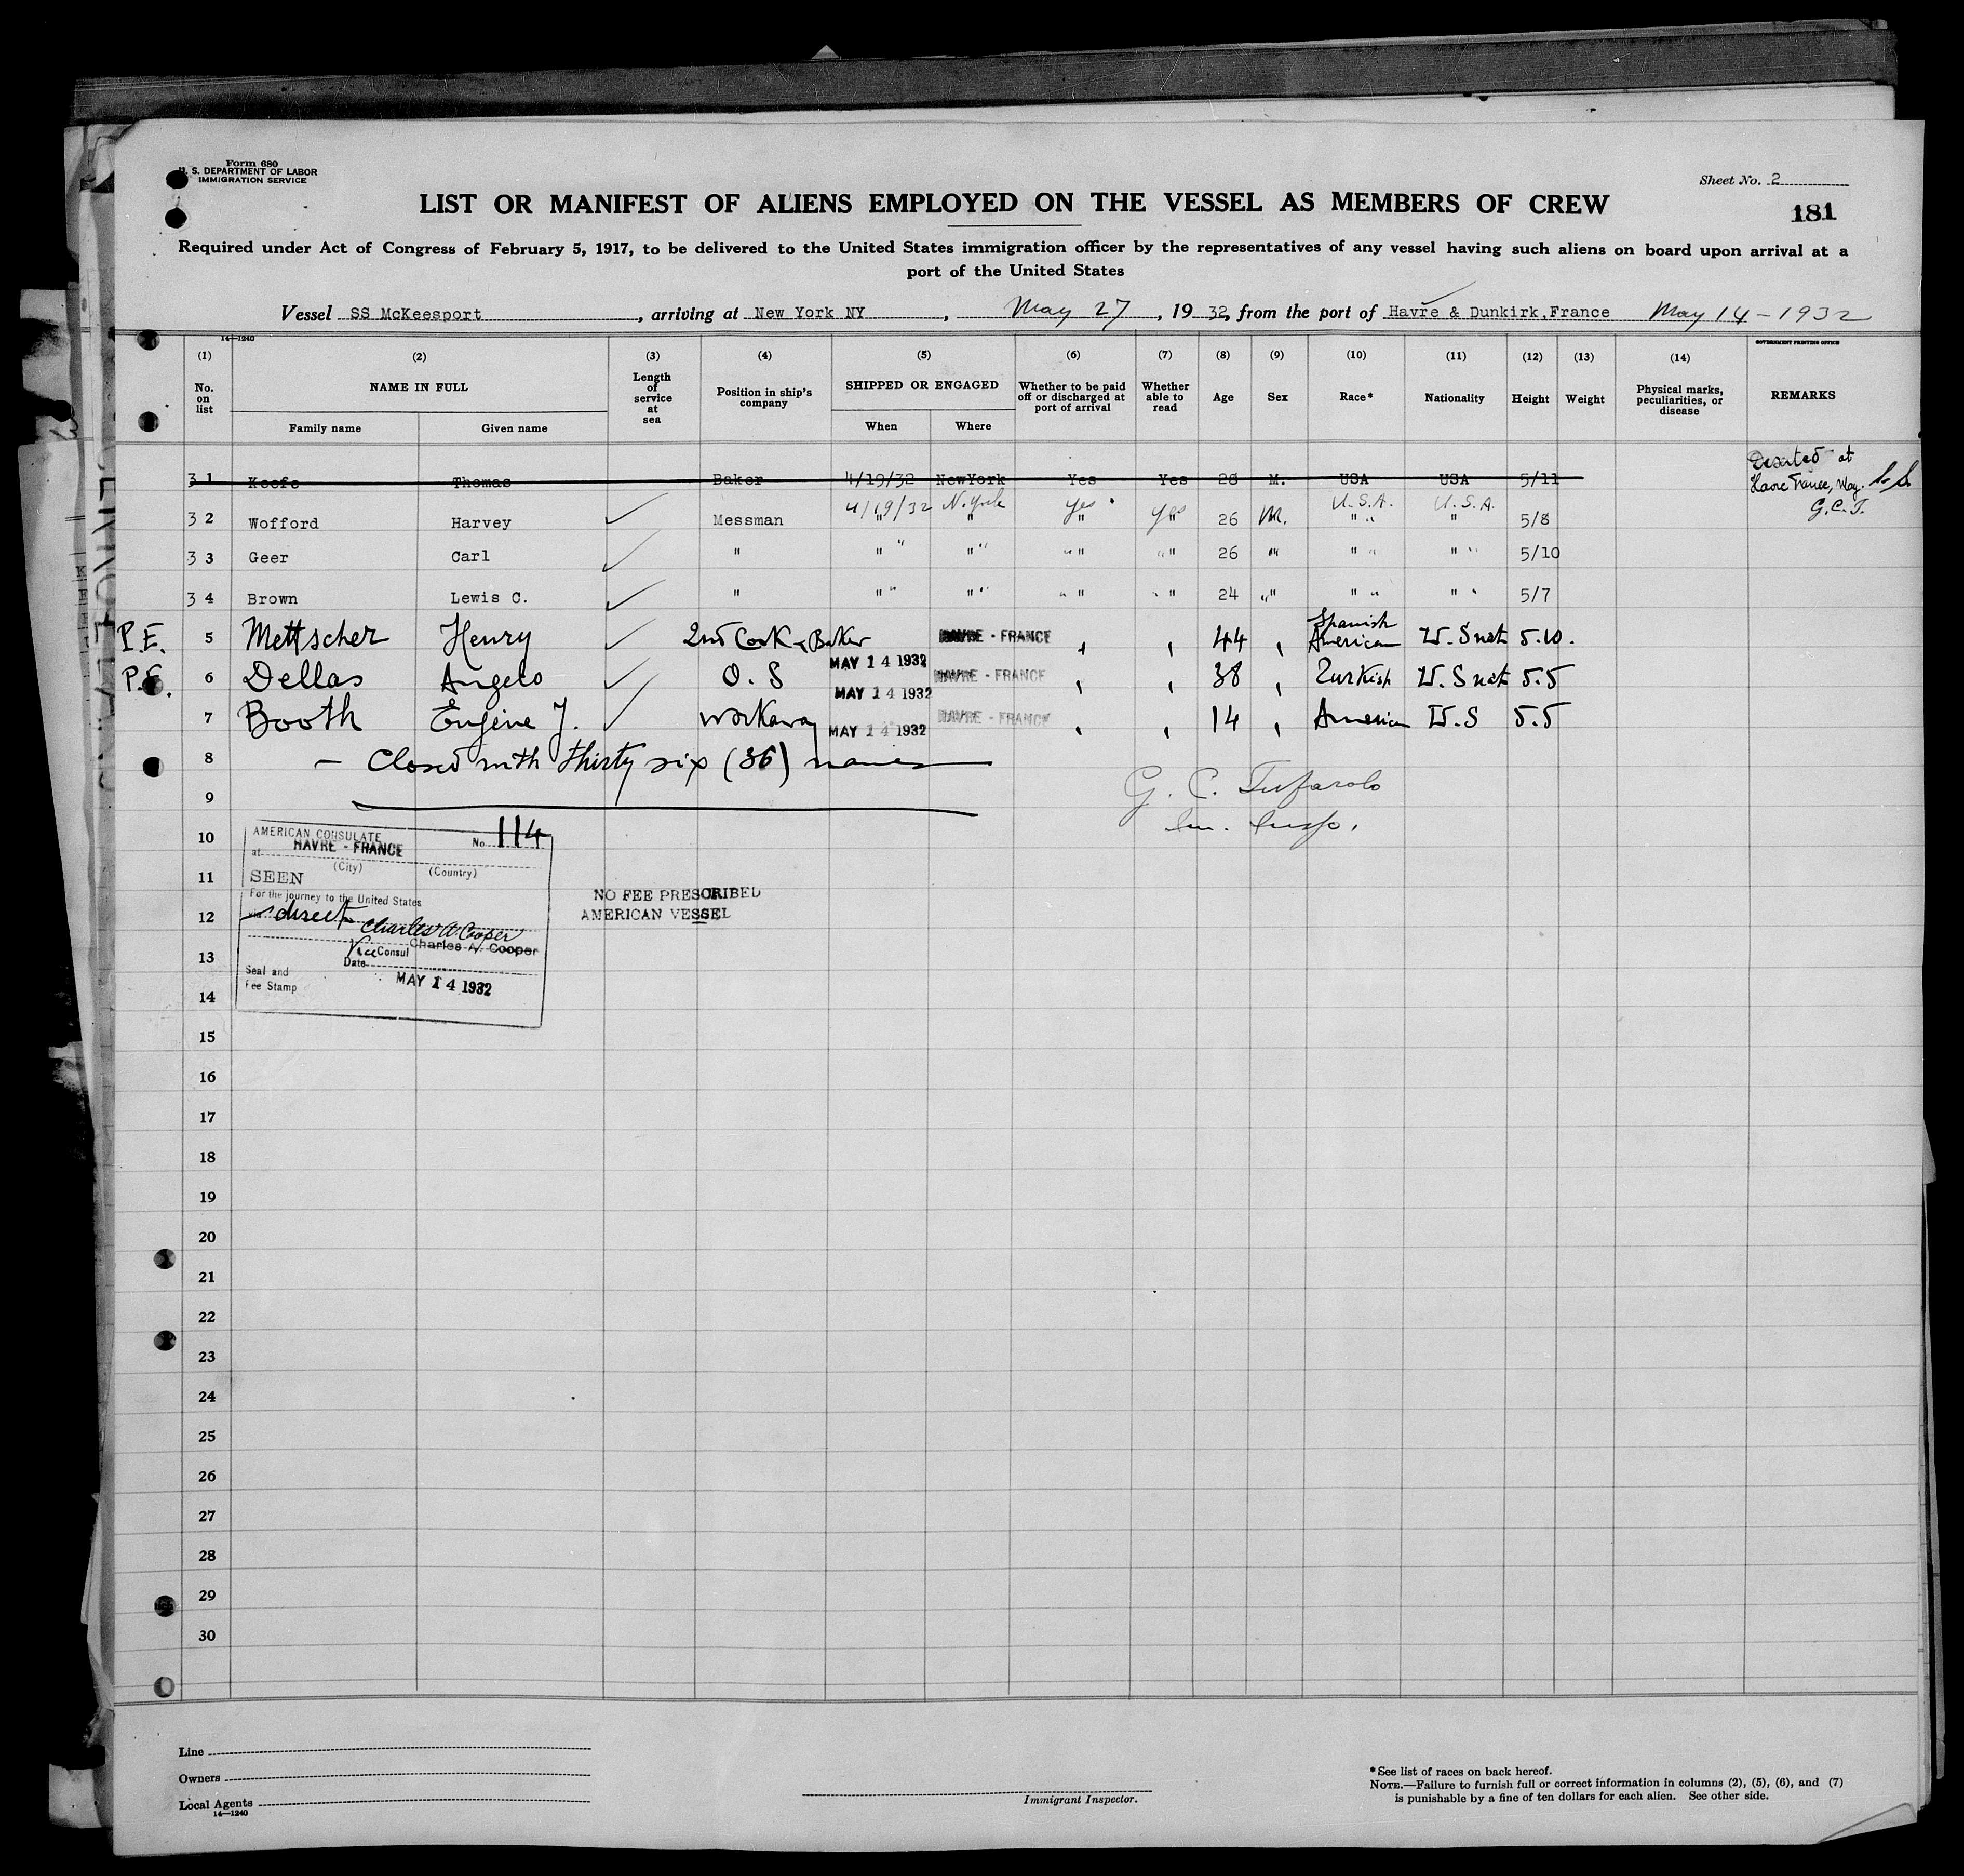 Form 680
U. S. DEPARTMENT OF LABOR
IMMIGRATION SERVICE
Sheet No. 2
181
LIST OR MANIFEST OF ALIENS EMPLOYED ON THE VESSEL AS MEMBERS OF CREW
Required under Act of Congress of February 5, 1917, to be delivered to the United States immigration officer by the representatives of any vessel having such aliens on board upon arrival at a
port of the United States
Vessel SS McKeesport, arriving at New York NY, May 27, 1932, from the port of Havre & Dunkirk, France May 14 - 1932
14—1240
GOVERNMENT PRINTING OFFICE
(1) (2) (3) (4) (5) (6) (7) (8) (9) (10) (11) (12) (13) (14)
No. on list NAME IN FULL Length of service at sea Position in ship's company SHIPPED OR ENGAGED Whether to be paid off or discharged at port of arrival Whether able to read Age Sex Race* Nationality Height Weight Physical marks, peculiarities, or disease REMARKS
Family name Given name When Where
31 Keefe Thomas Baker 4/19/32 NewYork Yes Yes 28 M. USA USA 5/11 Deserted at Havre France, May.
G.C.T.
32 Wofford Harvey Messman 4/19/32 N.York Yes Yes 26 M. U.S.A. U.S.A. 5/8
33 Geer Carl " " " " " 26 " " " 5/10
34 Brown Lewis C. " " " " " 24 " " " 5/7
P.E. 5 Mettscher Henry 2nd Cook & Baker MAY 14 1932 HAVRE - FRANCE " " 44 " Spanish American U.S nat 5.10.
P.E. 6 Dellas Angelo O.S MAY 14 1932 HAVRE - FRANCE " " 38 " Turkish U.S nat 5.5
7 Booth Eugene J. Workaway MAY 14 1932 HAVRE - FRANCE " " 14 " American U.S 5.5
8 — Closed with thirty six (36) names
G. C. Tufarolo
Im. Insp.
9
10
11
12
13
14
AMERICAN CONSULATE No. 114
at HAVRE - FRANCE
(City) (Country)
SEEN
For the journey to the United States
via direct
Charles A Cooper
Charles A. Cooper
Vice Consul
Date MAY 14 1932
Seal and
Fee Stamp
NO FEE PRESCRIBED
AMERICAN VESSEL
15
16
17
18
19
20
21
22
23
24
25
26
27
28
29
30
Line
Owners
Local Agents
14—1240
Immigrant Inspector.
*See list of races on back hereof.
NOTE.—Failure to furnish full or correct information in columns (2), (5), (6), and (7)
is punishable by a fine of ten dollars for each alien. See other side.